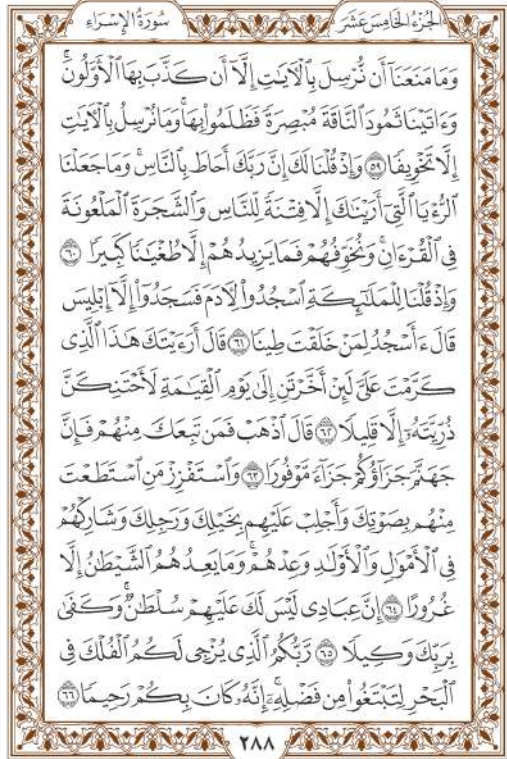 الجزء الخامس عشر سورة الإسراء
وَمَا مَنَعَنَآ أَن نُّرْسِلَ بِٱلْءَايَٰتِ إِلَّآ أَن كَذَّبَ بِهَا ٱلْأَوَّلُونَۚ
وَءَاتَيْنَا ثَمُودَ ٱلنَّاقَةَ مُبْصِرَةً فَظَلَمُوا۟ بِهَاۚ وَمَا نُرْسِلُ بِٱلْءَايَٰتِ
إِلَّا تَخْوِيفًا ٥٩ وَإِذْ قُلْنَا لَكَ إِنَّ رَبَّكَ أَحَاطَ بِٱلنَّاسِۚ وَمَا جَعَلْنَا
ٱلرُّءْيَا ٱلَّتِىٓ أَرَيْنَٰكَ إِلَّا فِتْنَةً لِّلنَّاسِ وَٱلشَّجَرَةَ ٱلْمَلْعُونَةَ
فِى ٱلْقُرْءَانِۚ وَنُخَوِّفُهُمْ فَمَا يَزِيدُهُمْ إِلَّا طُغْيَٰنًا كَبِيرًا ٦٠
وَإِذْ قُلْنَا لِلْمَلَٰٓئِكَةِ ٱسْجُدُوا۟ لِءَادَمَ فَسَجَدُوٓا۟ إِلَّآ إِبْلِيسَ
قَالَ ءَأَسْجُدُ لِمَنْ خَلَقْتَ طِينًا ٦١ قَالَ أَرَءَيْتَكَ هَٰذَا ٱلَّذِى
كَرَّمْتَ عَلَىَّ لَئِنْ أَخَّرْتَنِ إِلَىٰ يَوْمِ ٱلْقِيَٰمَةِ لَأَحْتَنِكَنَّ
ذُرِّيَّتَهُۥٓ إِلَّا قَلِيلًا ٦٢ قَالَ ٱذْهَبْ فَمَن تَبِعَكَ مِنْهُمْ فَإِنَّ
جَهَنَّمَ جَزَآؤُكُمْ جَزَآءً مَّوْفُورًا ٦٣ وَٱسْتَفْزِزْ مَنِ ٱسْتَطَعْتَ
مِنْهُم بِصَوْتِكَ وَأَجْلِبْ عَلَيْهِم بِخَيْلِكَ وَرَجِلِكَ وَشَارِكْهُمْ
فِى ٱلْأَمْوَٰلِ وَٱلْأَوْلَٰدِ وَعِدْهُمْۚ وَمَا يَعِدُهُمُ ٱلشَّيْطَٰنُ إِلَّا
غُرُورًا ٦٤ إِنَّ عِبَادِى لَيْسَ لَكَ عَلَيْهِمْ سُلْطَٰنٌۚ وَكَفَىٰ
بِرَبِّكَ وَكِيلًا ٦٥ رَّبُّكُمُ ٱلَّذِى يُزْجِى لَكُمُ ٱلْفُلْكَ فِى
ٱلْبَحْرِ لِتَبْتَغُوا۟ مِن فَضْلِهِۦٓۚ إِنَّهُۥ كَانَ بِكُمْ رَحِيمًا ٦٦
٢٨٨